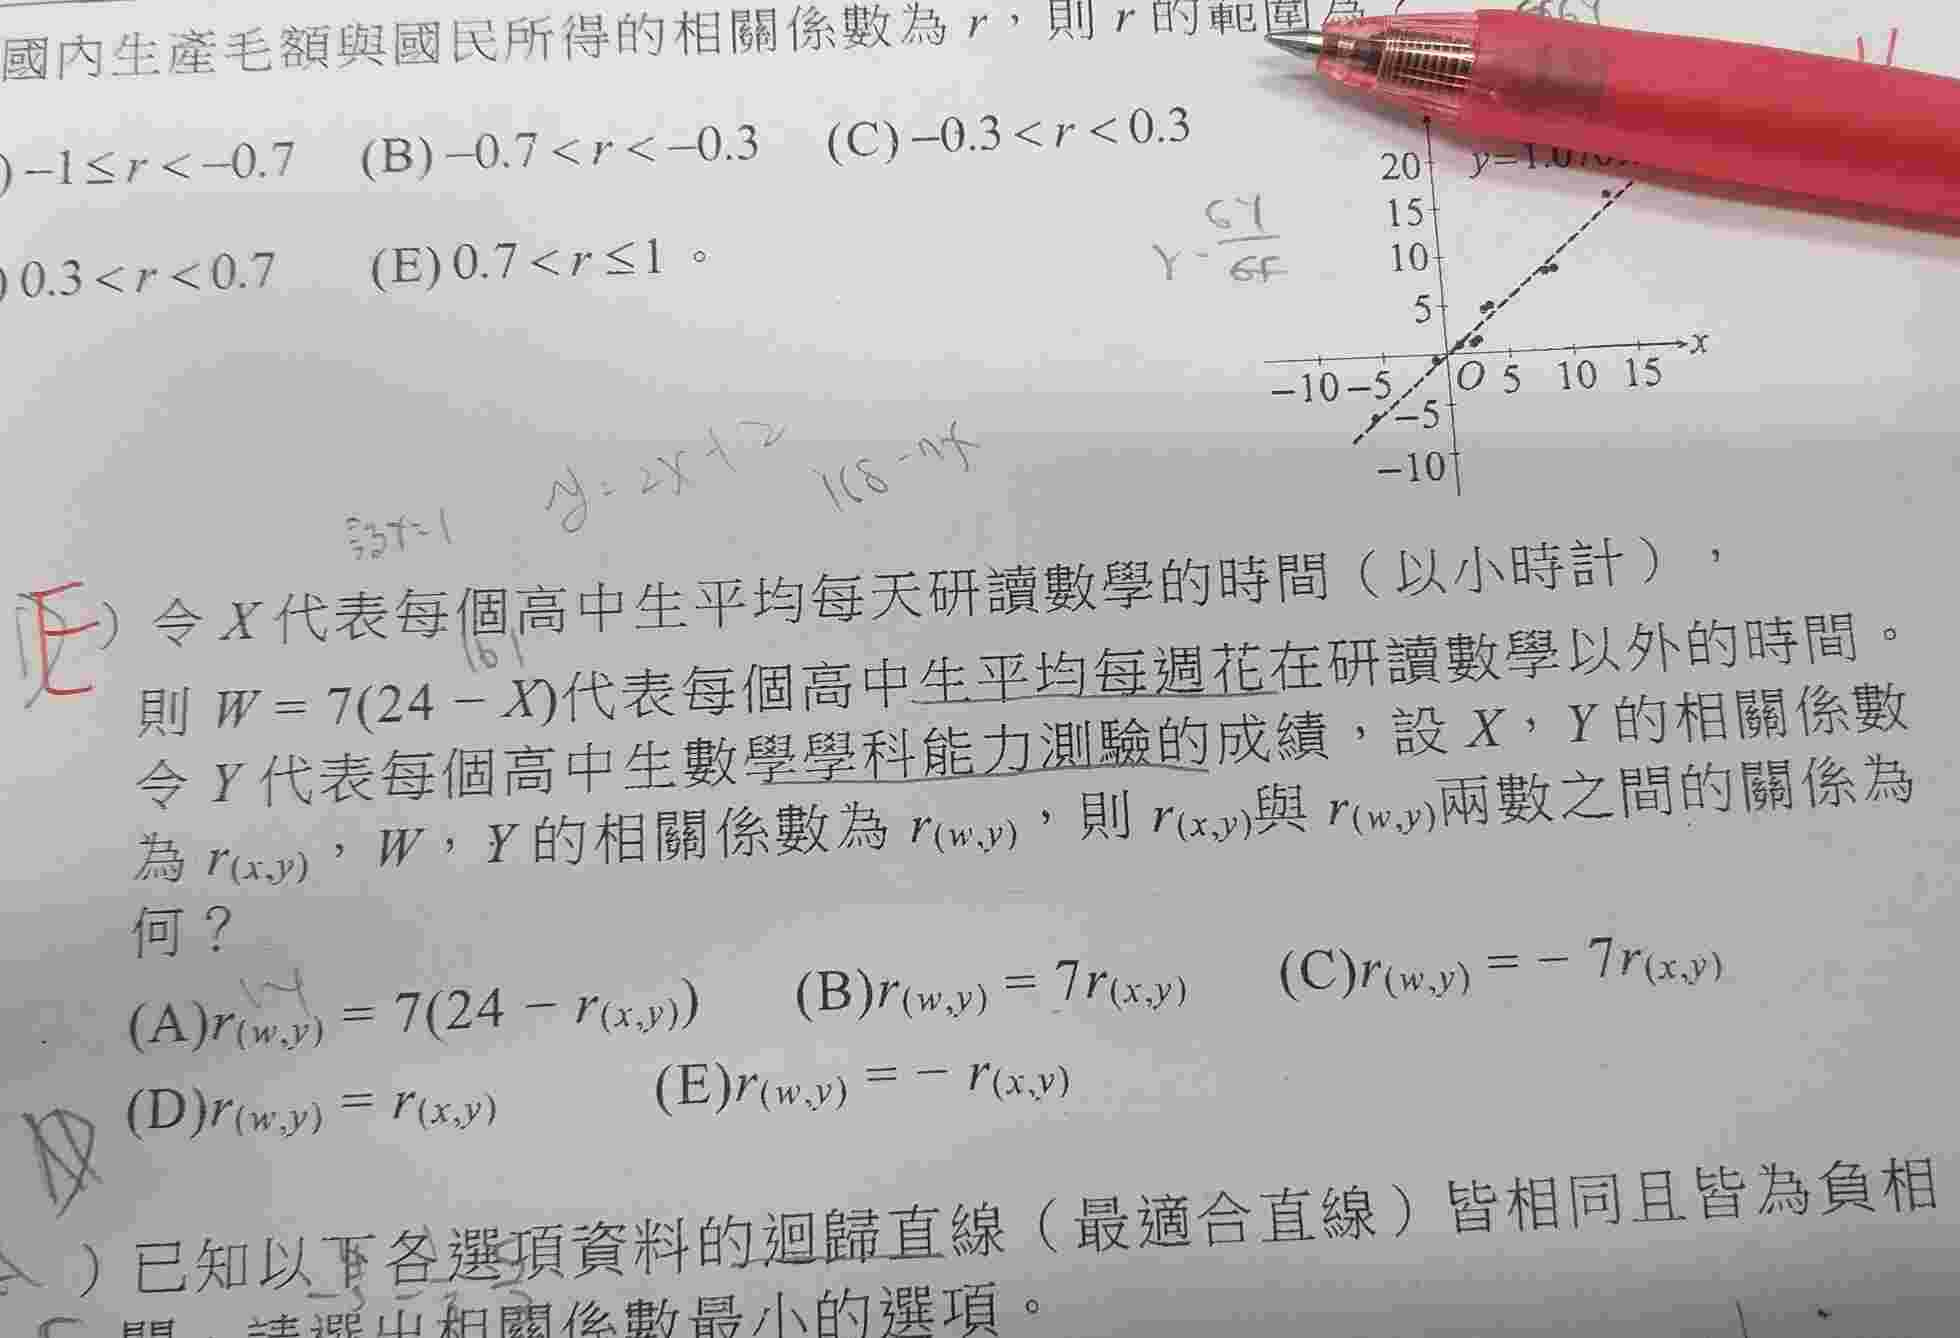 國內生產毛額與國民所得的相關係數為 r,則 r 的範圍為
) −1≤r<−0.7 (B) −0.7<r<−0.3 (C) −0.3<r<0.3
) 0.3<r<0.7 (E) 0.7<r≤1 。
20 y=1.0
15
10
5
−10 −5 O 5 10 15 x
−5
−10
y=2x+2
168-7x
E ) 令 X 代表每個高中生平均每天研讀數學的時間(以小時計),
則 W = 7(24 − X)代表每個高中生平均每週花在研讀數學以外的時間。
令 Y 代表每個高中生數學學科能力測驗的成績,設 X,Y 的相關係數
為 r(x,y),W,Y 的相關係數為 r(w,y),則 r(x,y)與 r(w,y)兩數之間的關係為
何?
(A)r(w,y) = 7(24 − r(x,y)) (B)r(w,y) = 7r(x,y) (C)r(w,y) = − 7r(x,y)
(D)r(w,y) = r(x,y) (E)r(w,y) = − r(x,y)
) 已知以下各選項資料的迴歸直線(最適合直線)皆相同且皆為負相
關,請選出相關係數最小的選項。